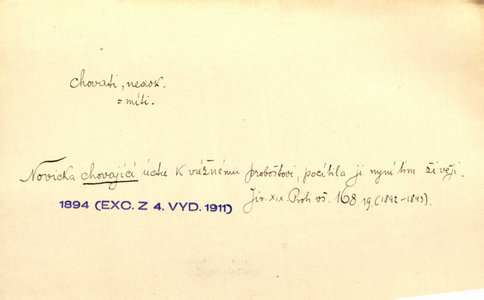 chovati, nedok.
= míti.
Novicka chovající úctu k vážnému proboštovi, pocítila ji nyní tím živěji.
1894 (EXC. Z 4. VYD. 1911) Jir. XIX. Proti vš. 168 19. (1892-1893).